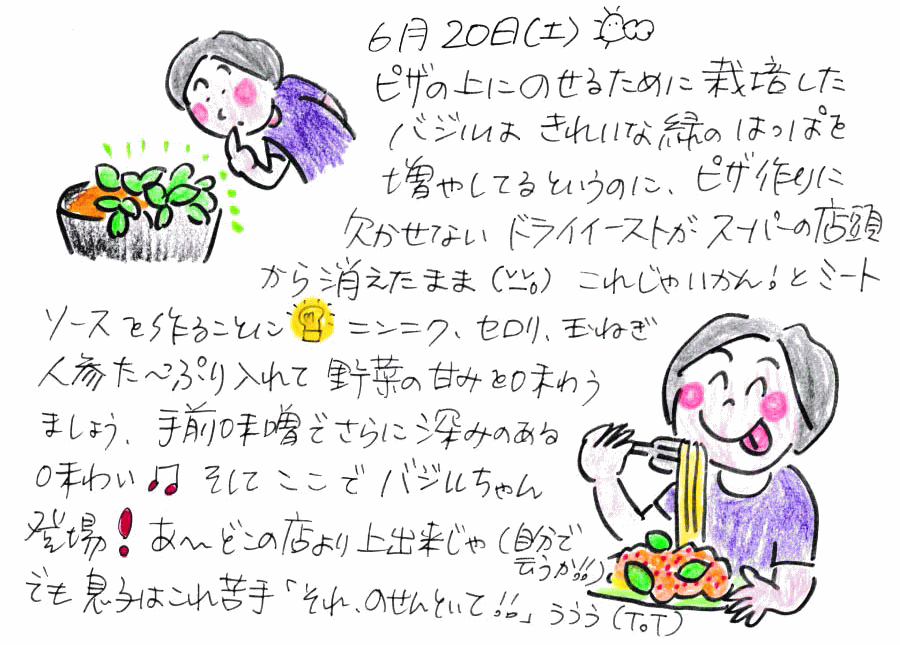 6月20日(土)
ピザの上にのせるために栽培した
バジルは きれいな緑の はっぱを
増やしてるというのに、ピザ作りに
欠かせない ドライイーストが スーパーの店頭
から消えたまま これじゃいかん!とミート
ソースを作ることに ニンニク、セロリ、玉ねぎ
人参た〜ぷり入れて 野菜の甘みを味わう
ましょう、手前味噌でさらに深みのある
味わい♫ そして ここで バジルちゃん
登場! あ〜どこの店より上出来じゃ(自分で
云うか!!)
でも息子はこれ苦手「それ、のせんといて!!」ううう(T。T)